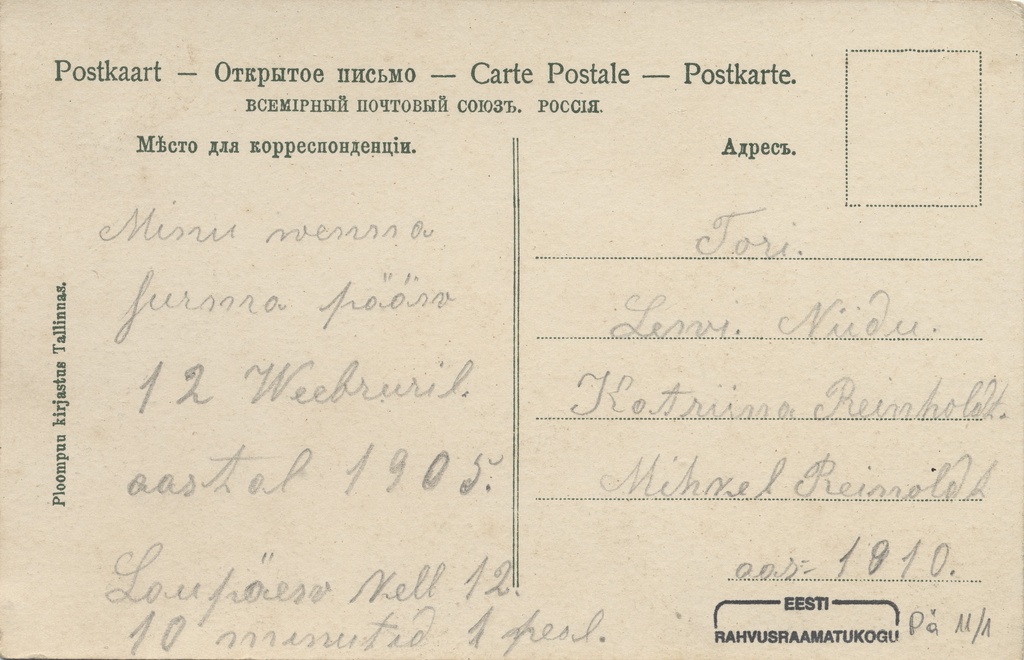 Postkaart — Открытое письмо — Carte Postale — Postkarte.
ВСЕМІРНЫЙ ПОЧТОВЫЙ СОЮЗЪ. РОССІЯ.
Мѣсто для корреспонденціи.
Minu wenna
surma pääw
12 Weebruril.
aastal 1905.
Laupäew kell 12.
10 minutid 1 peal.
Ploompuu kirjastus Tallinnas.
Адресъ.
Tori.
Niidu.
Katriina Reinholdt.
Mihkel Reinoldt
aas- 1910.
EESTI
RAHVUSRAAMATUKOGU
Pä 11/1